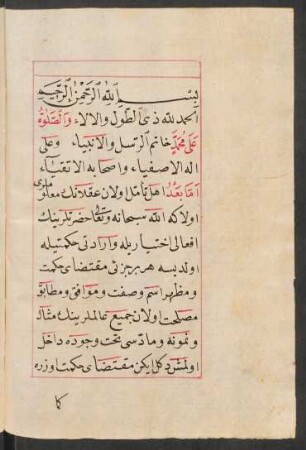 بسم الله الرحمن الرحيم
الحمد لله ذى الطول والالاء والصلوة
على محمد خاتم الرسل والانبياء وعلى
اله الاصفياء واصحابه الاتقياء
اما بعد اهل تأمل اولان عقلانك معلوملرى
اولا كه الله سبحانه وتعالى حضرتلرينك
افعالى اختياريله وارادتى حكمتيله
اولديسه هر برجزئى مقتضاى حكمت
ومظهر اسم وصفت وموافق ومطابق
مصلحت اولان جميع عالملرينك مثال
ونمونه وماده سى تحت وجوده داخل
اولمشدر كل ايكن مقتضاى حكمت اوزره
كا